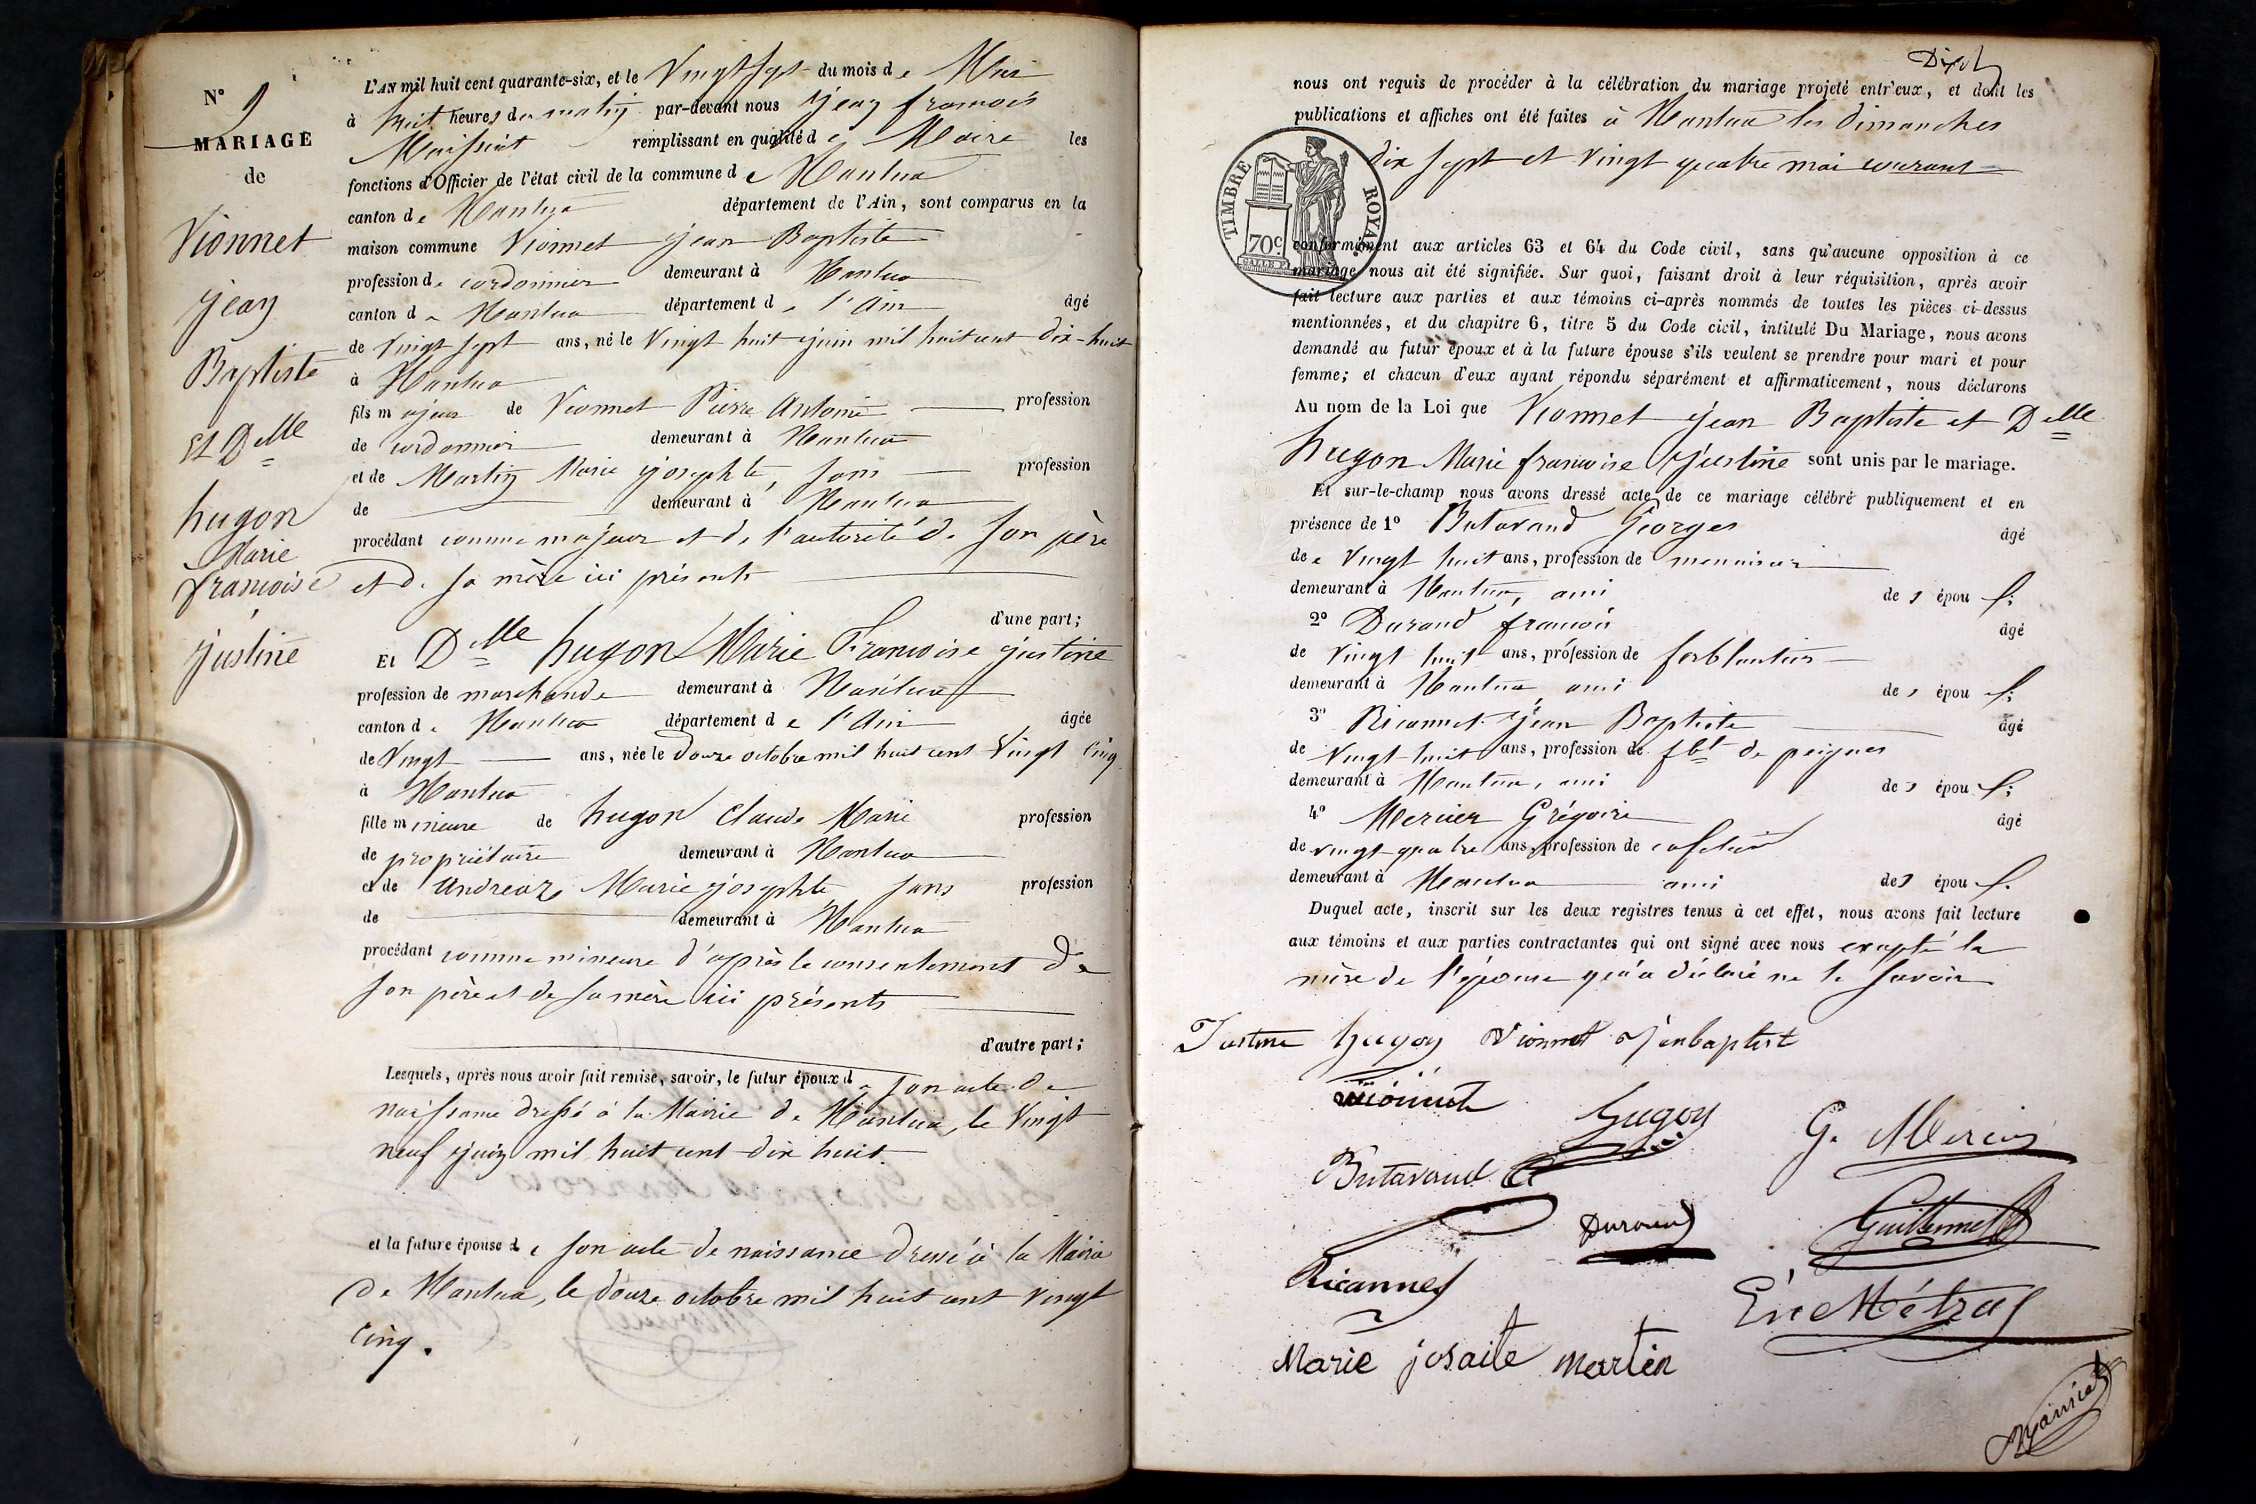 N° 9
MARIAGE
de
Vionnet
jean
Baptiste
Et Dlle
hugon
Marie
francoise
justine
L'AN mil huit cent quarante-six, et le Vingt Sept du mois de Mai
à huit heures du matin par-devant nous jean francois
Maissiat remplissant en qualité de Maire les
fonctions d'Officier de l'état civil de la commune de Nantua
canton de Nantua département de l'Ain, sont comparus en la
maison commune Vionnet jean Baptiste
profession de cordonnier demeurant à Nantua
canton de Nantua département de l'Ain âgé
de Vingt Sept ans, né le Vingt huit juin mil huit cent dix-huit
à Nantua
fils majeur de Vionnet Pierre Antoine profession
de cordonnier demeurant à Nantua
et de Martin Marie josephte, sans profession
de demeurant à Nantua
procédant comme majeur et de l'autorité de son père
et de sa mère ici présents
d'une part;
Et Dlle hugon Marie Francoise justine
profession de marchande demeurant à Nantua
canton de Nantua département de l'Ain âgée
de Vingt ans, née le douze octobre mil huit cent Vingt Cinq
à Nantua
fille mineure de hugon Claude Marie profession
de propriétaire demeurant à Nantua
et de Andreaz Marie josephte sans profession
de demeurant à Nantua
procédant comme mineure d'après le consentement de
son père et de sa mère ici présents
d'autre part;
Lesquels, après nous avoir fait remise, savoir, le futur époux de son acte de
naissance dressé à la Mairie de Nantua, le Vingt
neuf juin mil huit cent dix huit.
et la future épouse de son acte de naissance dressé à la Mairie
de Nantua, le douze octobre mil huit cent Vingt
Cinq.
nous ont requis de procéder à la célébration du mariage projeté entr'eux, et dont les
publications et affiches ont été faites à Nantua les dimanches
dix sept et vingt quatre mai courant
TIMBRE ROYAL
70c
conformément aux articles 63 et 64 du Code civil, sans qu'aucune opposition à ce
mariage nous ait été signifiée. Sur quoi, faisant droit à leur réquisition, après avoir
fait lecture aux parties et aux témoins ci-après nommés de toutes les pièces ci-dessus
mentionnées, et du chapitre 6, titre 5 du Code civil, intitulé Du Mariage, nous avons
demandé au futur époux et à la future épouse s'ils veulent se prendre pour mari et pour
femme; et chacun d'eux ayant répondu séparément et affirmativement, nous déclarons
Au nom de la Loi que Vionnet jean Baptiste et Dlle
hugon Marie francoise justine sont unis par le mariage.
Et sur-le-champ nous avons dressé acte de ce mariage célébré publiquement et en
présence de 1° Butavand Georges âgé
de Vingt huit ans, profession de menuisier
demeurant à Nantua, ami des épou
2° Durand francois âgé
de Vingt huit ans, profession de ferblantier
demeurant à Nantua ami des épou
3° Ricannet jean Baptiste âgé
de Vingt huit ans, profession de fbt de peignes
demeurant à Nantua, ami des épou
4° Mercier Grégoire âgé
de vingt-quatre ans, profession de cafetier
demeurant à Nantua ami des épou
Duquel acte, inscrit sur les deux registres tenus à cet effet, nous avons fait lecture
aux témoins et aux parties contractantes qui ont signé avec nous excepté la
mère de l'épouse qui a déclaré ne le savoir
Justine hugon Vionnet Jenbaptist
Hugon
G. Mercier
Butavand
Durand
Guillermet
Ricannet
Marie josaite martin
Maissiat